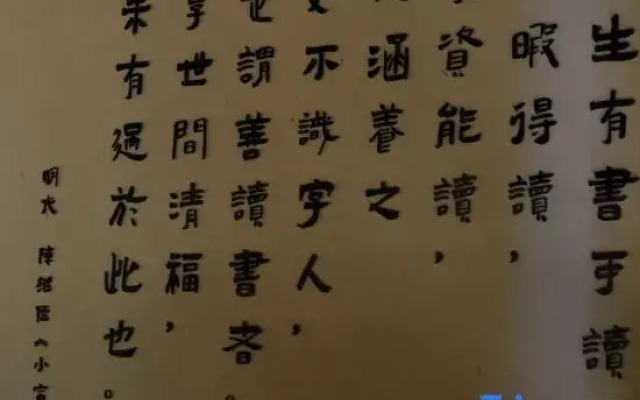 生有書可讀
暇得讀，
資能讀，
涵養之
不識字人，
也謂善讀書者
享世間清福，
未有過於此也。
明代 陳继儒《小窗